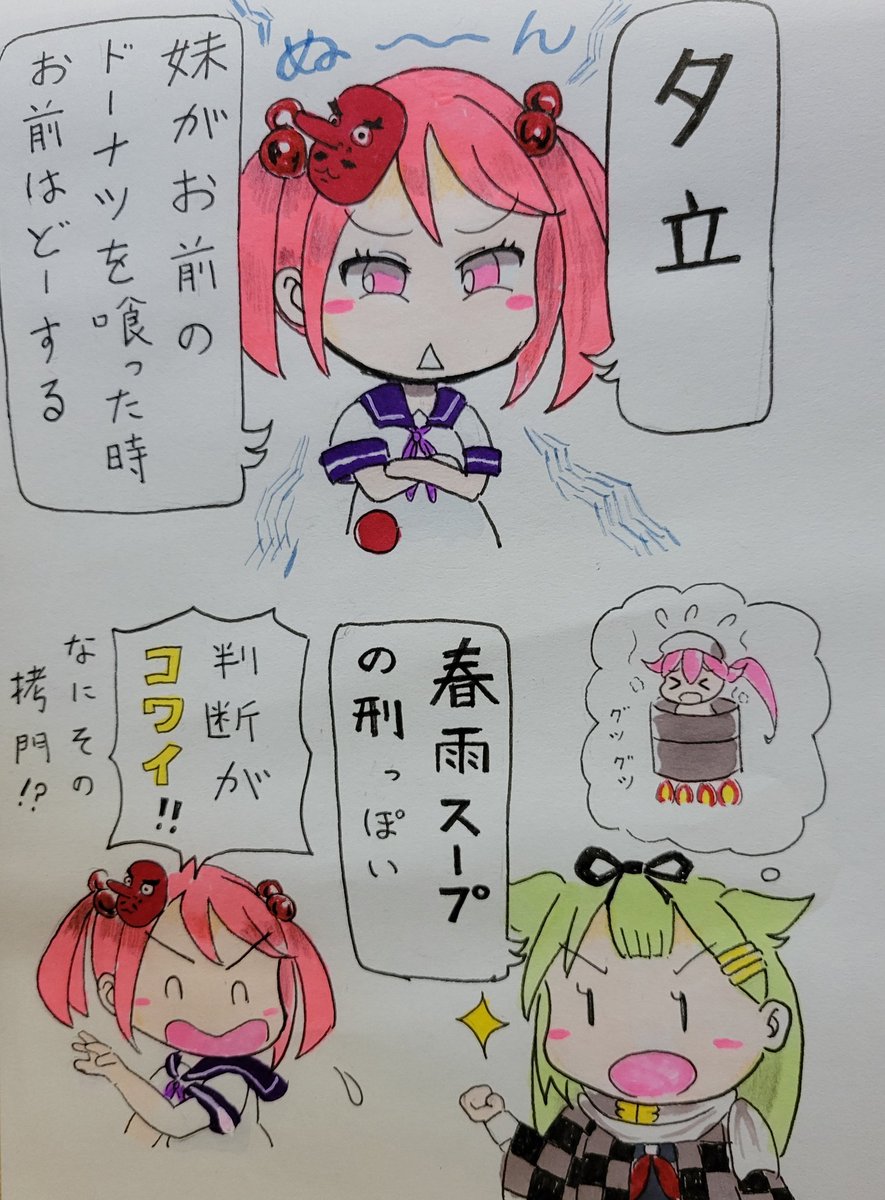 ぬ〜〜ん
夕立
妹がお前の
ドーナツを喰った時
お前はどーする
グツグツ
グツグツ
春雨スープ
の刑っぽい
判断が
コワイ!!
なにその
拷問!?